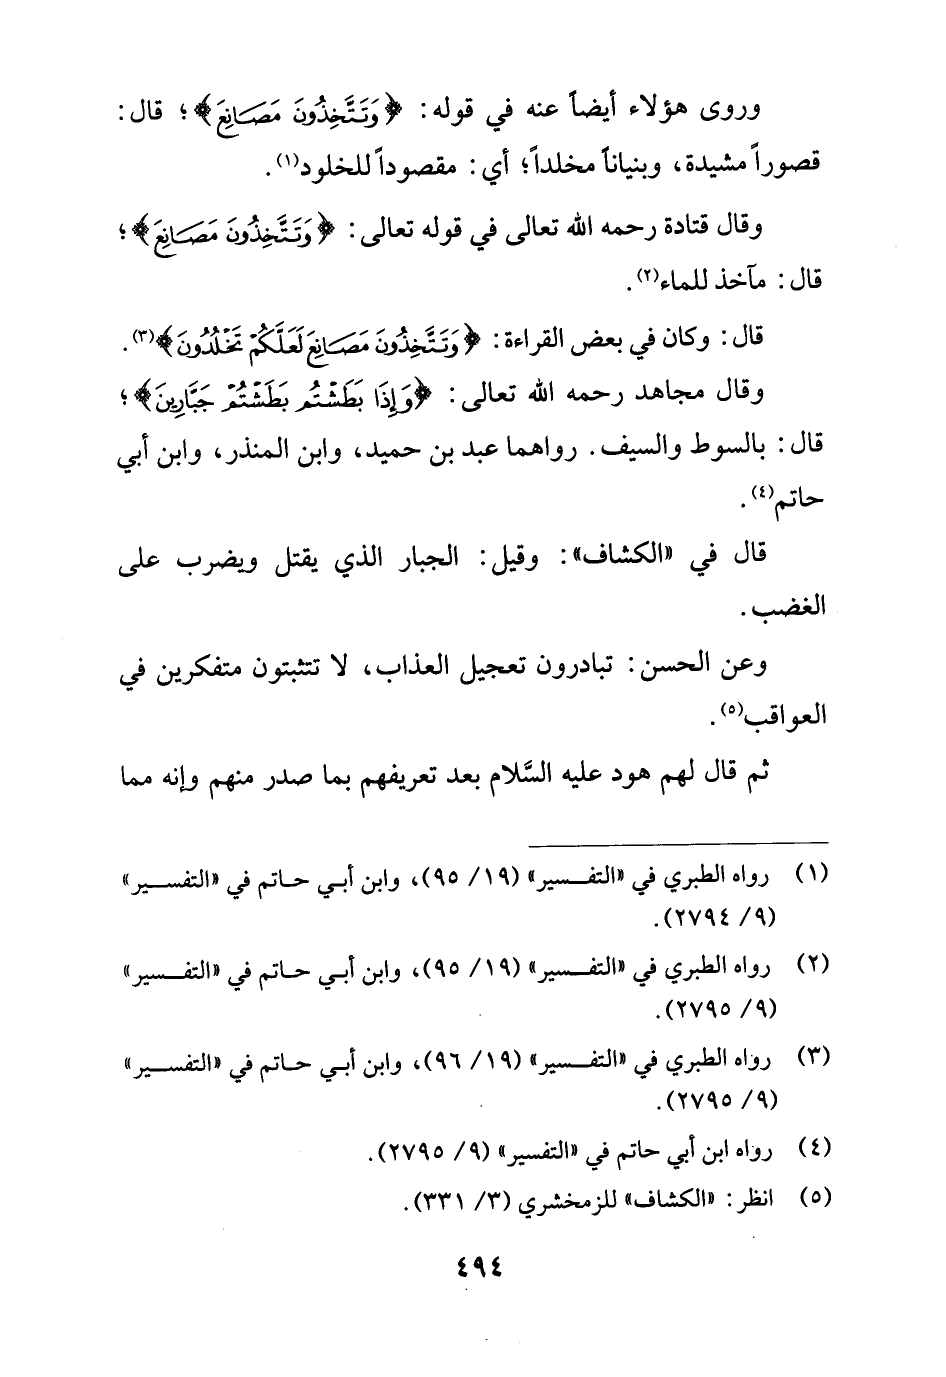 وروى هؤلاء أيضاً عنه في قوله: ﴿وَتَتَّخِذُونَ مَصَانِعَ﴾؛ قال:
قصوراً مشيدة، وبنياناً مخلداً؛ أي: مقصوداً للخلود(١).
وقال قتادة رحمه الله تعالى في قوله تعالى: ﴿وَتَتَّخِذُونَ مَصَانِعَ﴾؛
قال: مآخذ للماء(٢).
قال: وكان في بعض القراءة: ﴿وَتَتَّخِذُونَ مَصَانِعَ لَعَلَّكُمْ تَخْلُدُونَ﴾(٣).
وقال مجاهد رحمه الله تعالى: ﴿وَإِذَا بَطَشْتُم بَطَشْتُمْ جَبَّارِينَ﴾؛
قال: بالسوط والسيف. رواهما عبد بن حميد، وابن المنذر، وابن أبي
حاتم(٤).
قال في «الكشاف»: وقيل: الجبار الذي يقتل ويضرب على
الغضب.
وعن الحسن: تبادرون تعجيل العذاب، لا تتثبتون متفكرين في
العواقب(٥).
ثم قال لهم هود عليه السَّلام بعد تعريفهم بما صدر منهم وإنه مما
(١) رواه الطبري في «التفسير» (١٩/ ٩٥)، وابن أبي حاتم في «التفسير»
(٩/ ٢٧٩٤).
(٢) رواه الطبري في «التفسير» (١٩/ ٩٥)، وابن أبي حاتم في «التفسير»
(٩/ ٢٧٩٥).
(٣) رواه الطبري في «التفسير» (١٩/ ٩٦)، وابن أبي حاتم في «التفسير»
(٩/ ٢٧٩٥).
(٤) رواه ابن أبي حاتم في «التفسير» (٩/ ٢٧٩٥).
(٥) انظر: «الكشاف» للزمخشري (٣/ ٣٣١).
٤٩٤